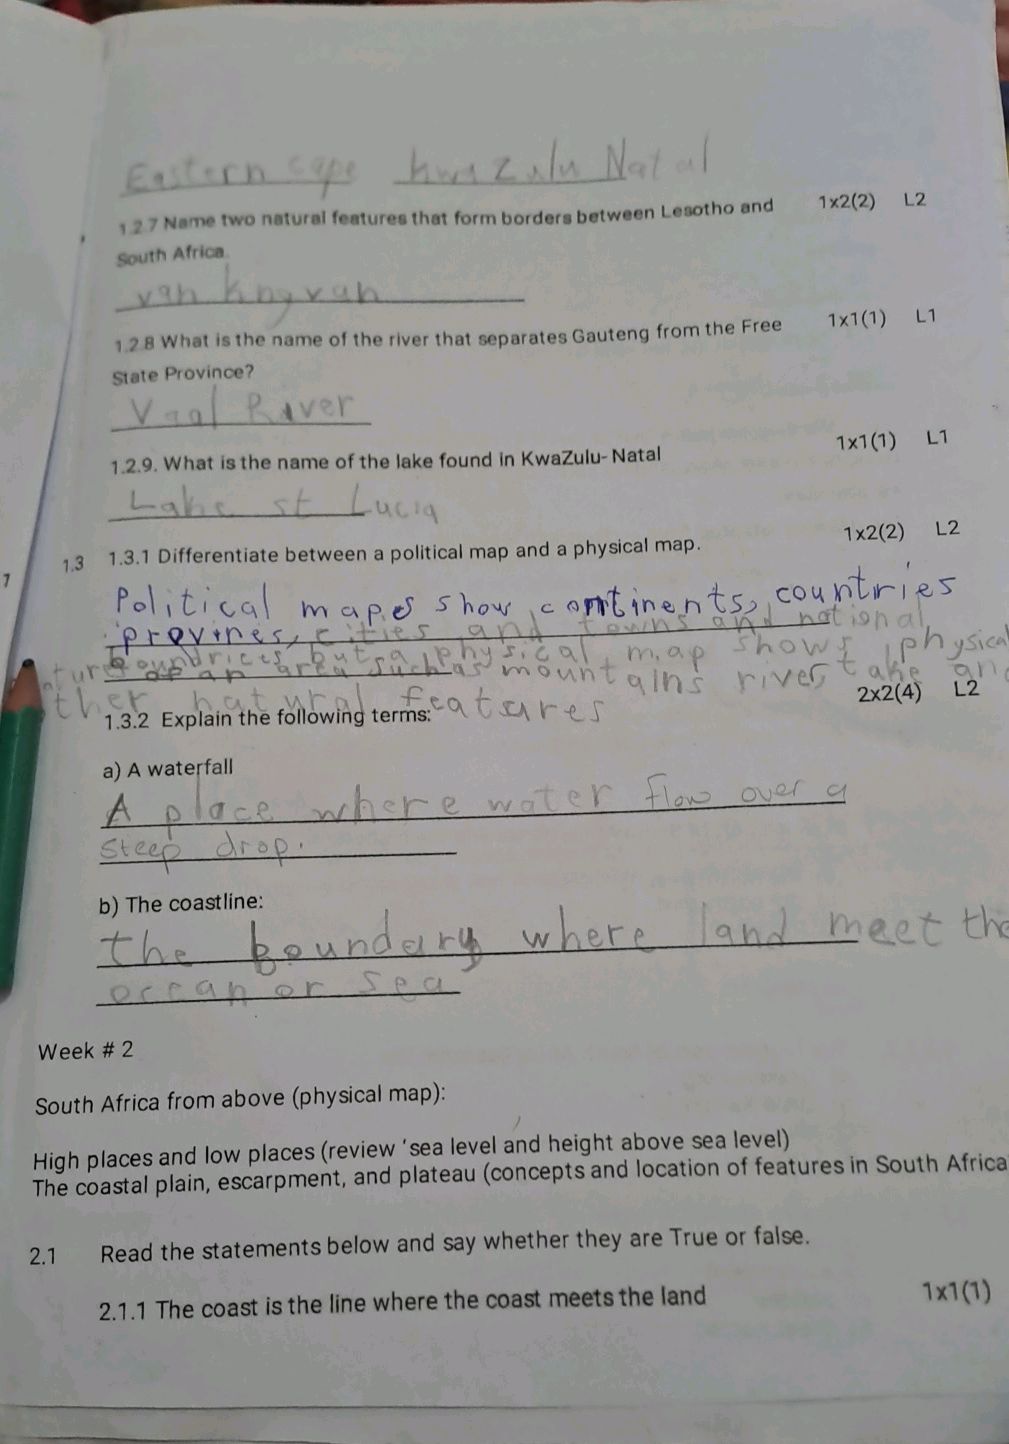 Eastern cape kwa Zulu Natal
1.2.7 Name two natural features that form borders between Lesotho and 1x2(2) L2
South Africa.
1.2.8 What is the name of the river that separates Gauteng from the Free 1x1(1) L1
State Province?
Vaal River
1.2.9. What is the name of the lake found in KwaZulu- Natal 1x1(1) L1
Lake st Lucia
1.3 1.3.1 Differentiate between a political map and a physical map. 1x2(2) L2
Political maps show continents, countries
provines, cities and towns and national
boundrices, but a physical map shows physical
of an area such as mountains river, lake an
ther natural features
1.3.2 Explain the following terms: 2x2(4) L2
a) A waterfall
A place where water flow over a
steep drop.
b) The coastline:
the boundary where land meet the
ocean or sea
Week # 2
South Africa from above (physical map):
High places and low places (review ‘sea level and height above sea level)
The coastal plain, escarpment, and plateau (concepts and location of features in South Africa
2.1 Read the statements below and say whether they are True or false.
2.1.1 The coast is the line where the coast meets the land 1x1(1)